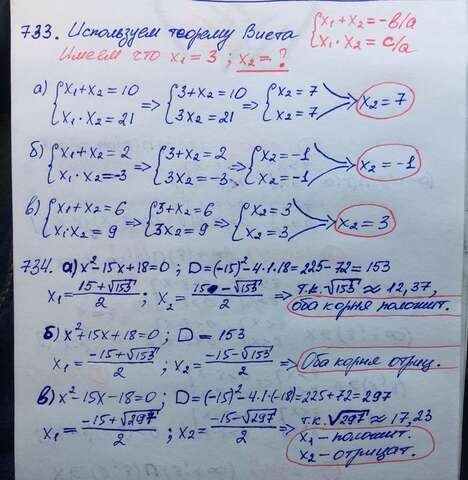 733. Используем теорему Виета {x₁+x₂=-b/a
Имеем что x₁=3; x₂=? {x₁·x₂=c/a
а) {x₁+x₂=10 => {3+x₂=10 => {x₂=7 > x₂=7
{x₁·x₂=21 {3x₂=21 {x₂=7
б) {x₁+x₂=2 => {3+x₂=2 => {x₂=-1 > x₂=-1
{x₁·x₂=-3 {3x₂=-3 {x₂=-1
в) {x₁+x₂=6 => {3+x₂=6 => {x₂=3 > x₂=3
{x₁x₂=9 {3x₂=9 {x₂=3
734. а) x²-15x+18=0; D=(-15)²-4·1·18=225-72=153
x₁=(15+√153)/2; x₂=(15-√153)/2 => т.к. √153≈12,37,
оба корня положит.
б) x²+15x+18=0; D=153
x₁=(-15+√153)/2; x₂=(-15-√153)/2 => Оба корня отриц.
в) x²-15x-18=0; D=(-15)²-4·1·(-18)=225+72=297
x₁=(-15+√297)/2; x₂=(-15-√297)/2 => т.к. √297≈17,23
x₁-положит.
x₂-отрицат.